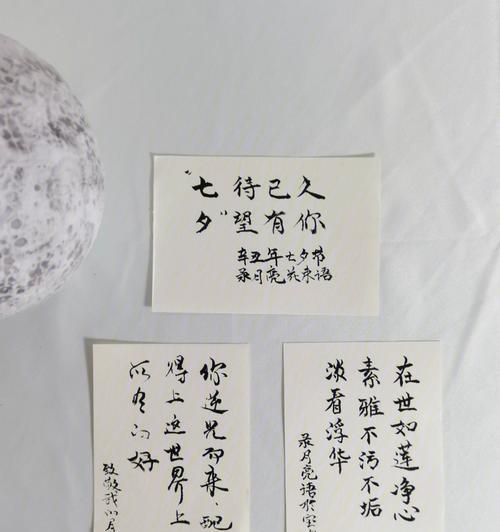 “七待已久
夕”望有你
辛丑年七夕节
录月亮花束语
你逆光而来，配
得上这世界上
所有的好
致敬我的月
在世如莲净心
素雅不污不垢
淡看浮华
录月亮语于